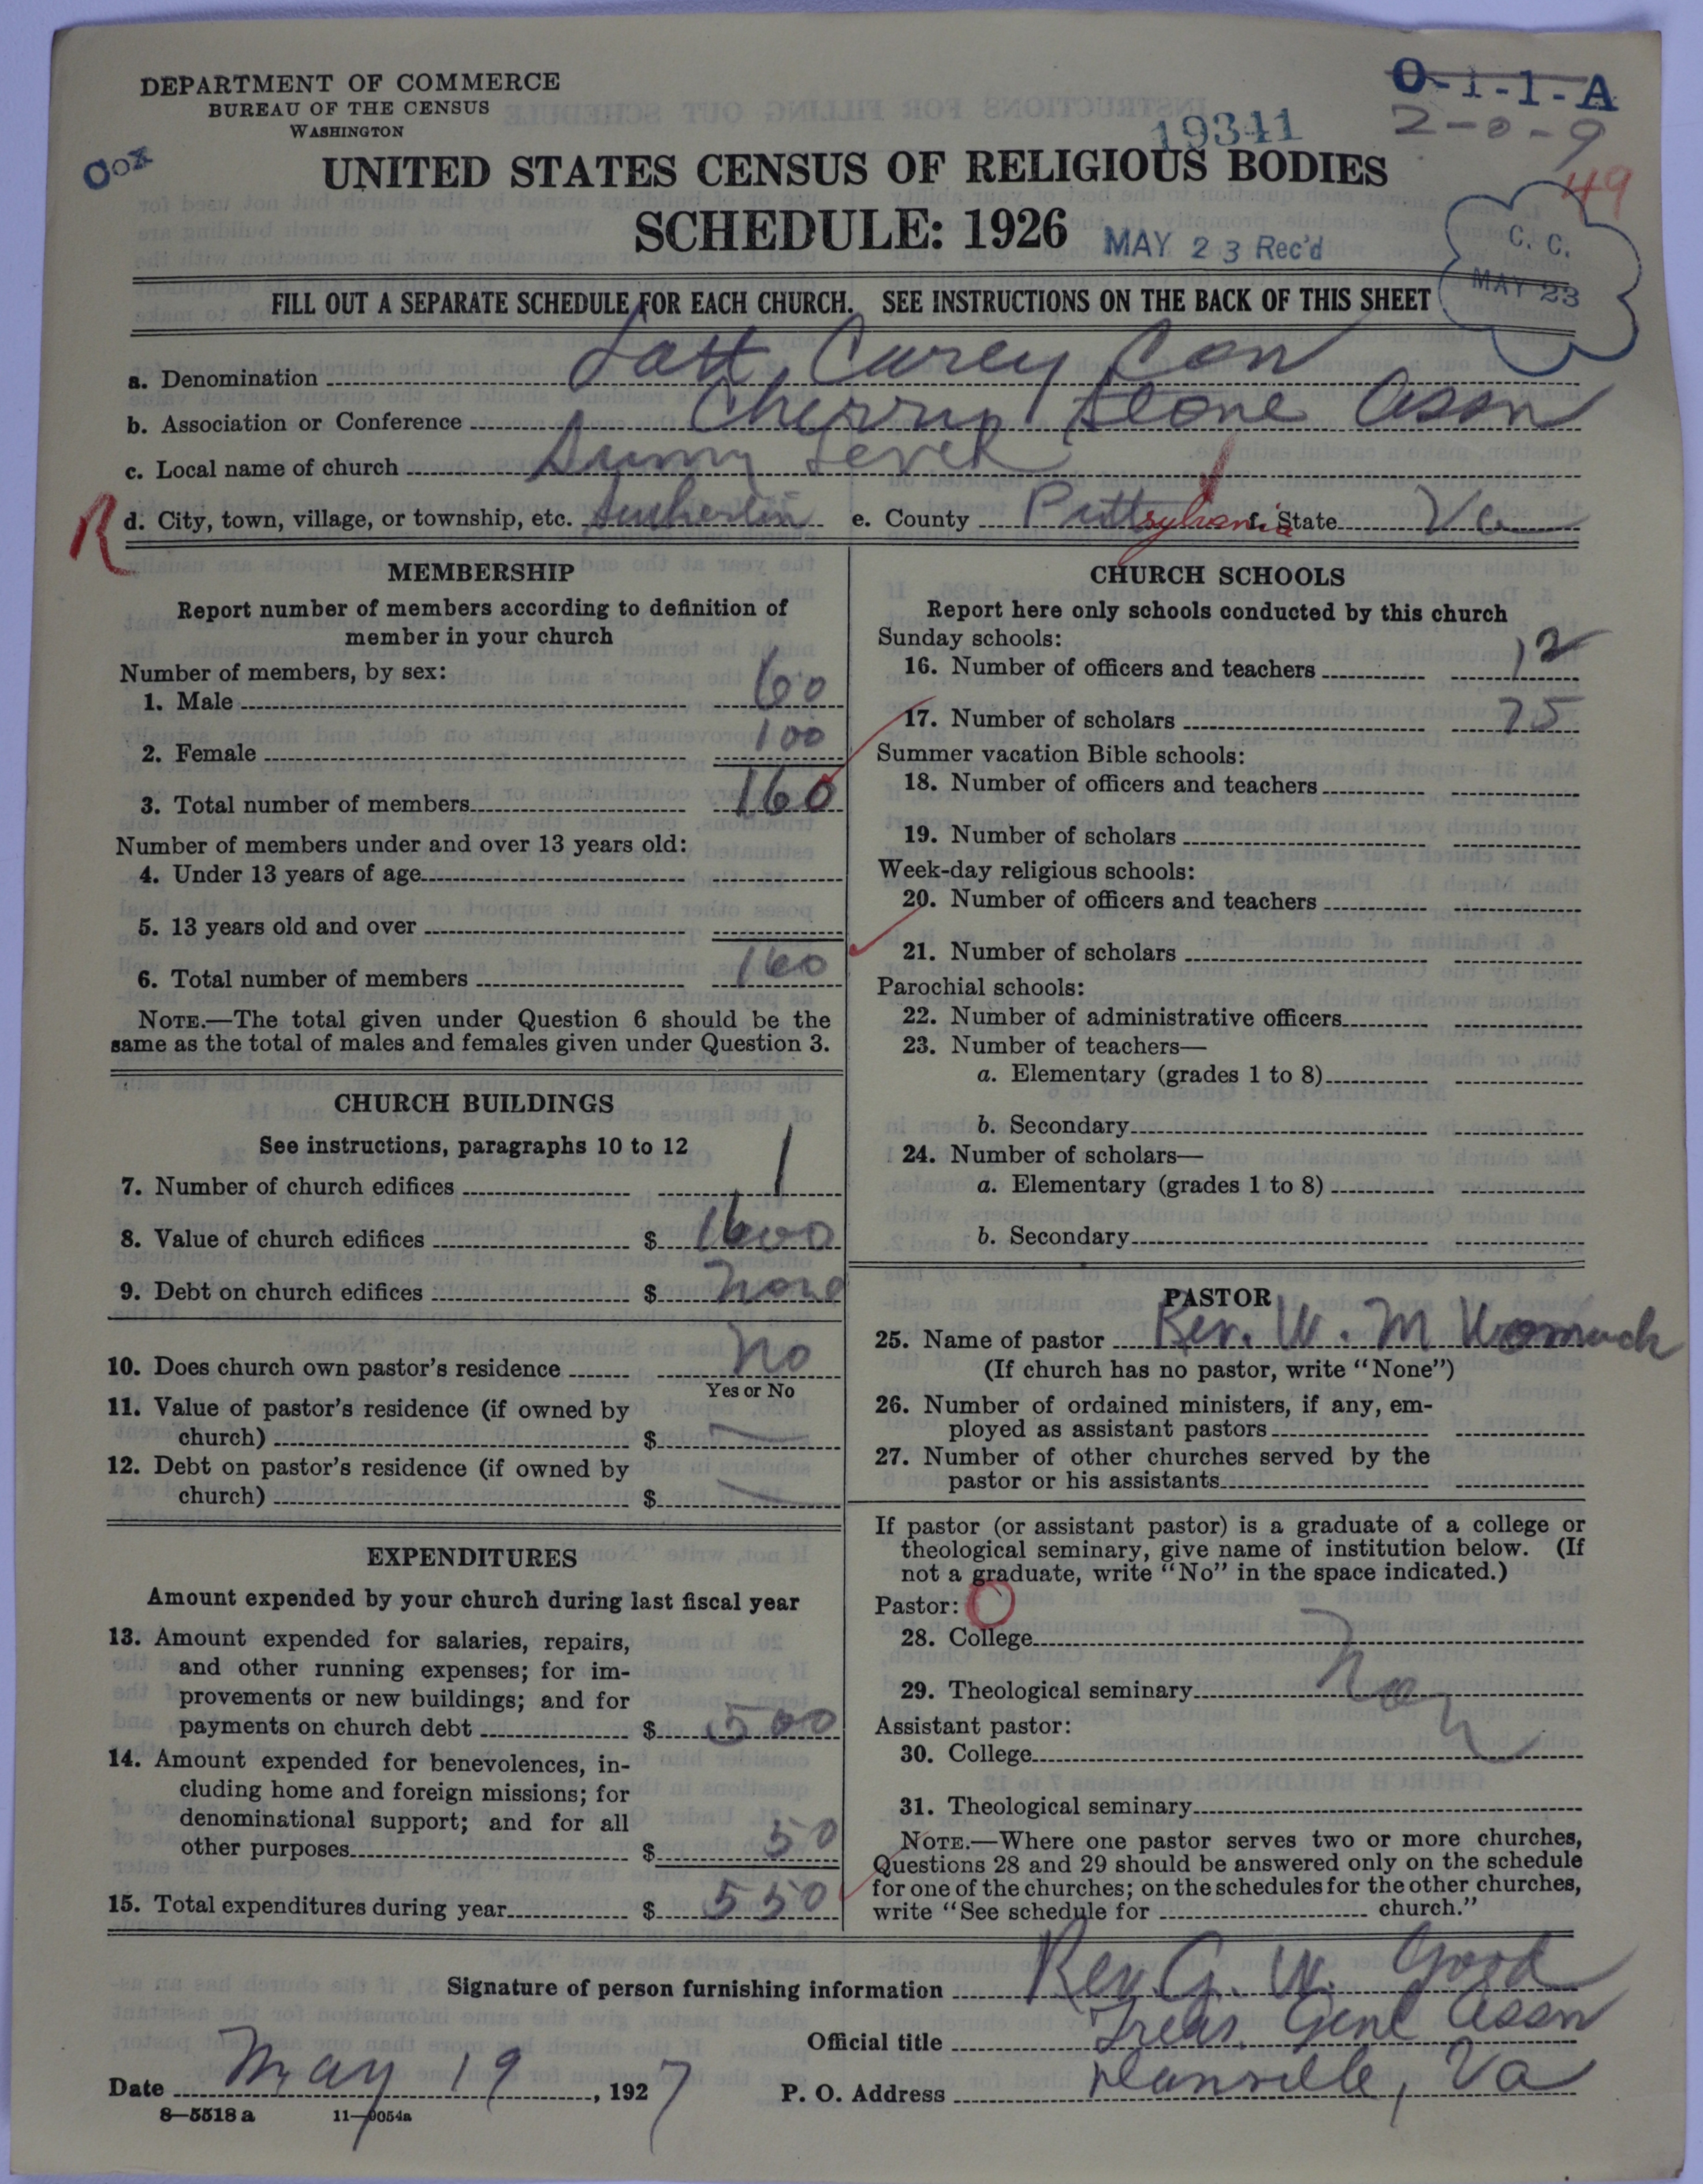 DEPARTMENT OF COMMERCE
BUREAU OF THE CENSUS
WASHINGTON
O-1-1-A
2-0-9
19341
49
COX
UNITED STATES CENSUS OF RELIGIOUS BODIES
SCHEDULE: 1926
MAY 23 Rec'd
C. C.
MAY 23
FILL OUT A SEPARATE SCHEDULE FOR EACH CHURCH. SEE INSTRUCTIONS ON THE BACK OF THIS SHEET
a. Denomination Lott Carey Con
b. Association or Conference Cherry Stone Assn
c. Local name of church Sunny Level
R
d. City, town, village, or township, etc. Sutherlin e. County Pittsylvania f. State Va
MEMBERSHIP
Report number of members according to definition of
member in your church
Number of members, by sex:
1. Male 60
2. Female 100
3. Total number of members 160
Number of members under and over 13 years old:
4. Under 13 years of age
5. 13 years old and over
6. Total number of members 160
NOTE.—The total given under Question 6 should be the
same as the total of males and females given under Question 3.
CHURCH BUILDINGS
See instructions, paragraphs 10 to 12
7. Number of church edifices 1
8. Value of church edifices $ 1600
9. Debt on church edifices $ none
10. Does church own pastor's residence No
Yes or No
11. Value of pastor's residence (if owned by
church) $
12. Debt on pastor's residence (if owned by
church) $
EXPENDITURES
Amount expended by your church during last fiscal year
13. Amount expended for salaries, repairs,
and other running expenses; for im-
provements or new buildings; and for
payments on church debt $ 500
14. Amount expended for benevolences, in-
cluding home and foreign missions; for
denominational support; and for all
other purposes $ 50
15. Total expenditures during year $ 550
CHURCH SCHOOLS
Report here only schools conducted by this church
Sunday schools:
16. Number of officers and teachers 12
17. Number of scholars 75
Summer vacation Bible schools:
18. Number of officers and teachers
19. Number of scholars
Week-day religious schools:
20. Number of officers and teachers
21. Number of scholars
Parochial schools:
22. Number of administrative officers
23. Number of teachers—
a. Elementary (grades 1 to 8)
b. Secondary
24. Number of scholars—
a. Elementary (grades 1 to 8)
b. Secondary
PASTOR
25. Name of pastor Rev. W. M
(If church has no pastor, write "None")
26. Number of ordained ministers, if any, em-
ployed as assistant pastors
27. Number of other churches served by the
pastor or his assistants
If pastor (or assistant pastor) is a graduate of a college or
theological seminary, give name of institution below. (If
not a graduate, write "No" in the space indicated.)
Pastor:
28. College
29. Theological seminary
Assistant pastor:
30. College
31. Theological seminary
NOTE.—Where one pastor serves two or more churches,
Questions 28 and 29 should be answered only on the schedule
for one of the churches; on the schedules for the other churches,
write "See schedule for church."
Signature of person furnishing information Rev. G. W. Good
Official title Treas. Genl Assn
Date May 19, 1927 P. O. Address Danville, Va
8—5518 a 11—9054a